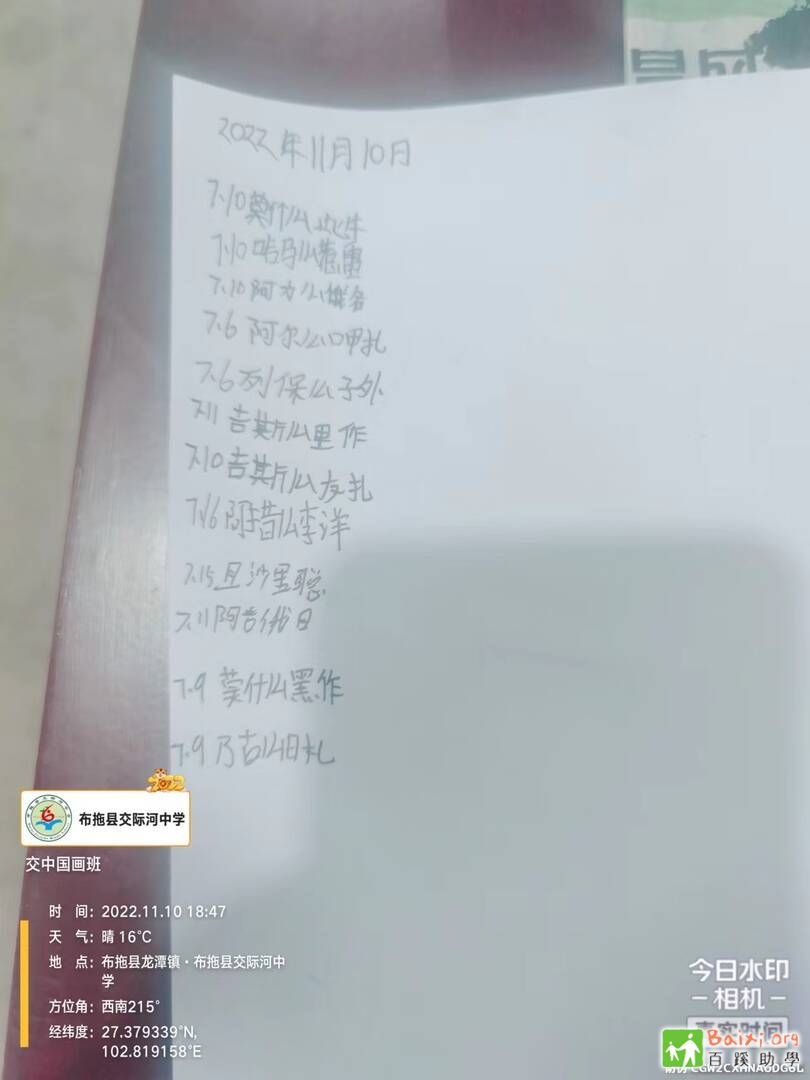 2022年11月10日
7.10莫什么此牛
7.10 哈马么惹雷
7.10 阿力么俄各
7.6 阿尔么口甲扎
7.6 列保么子外
7.11 吉其斤么里作
7.10 吉其斤么友扎
7.16 阿措么李洋
7.15 且沙里聪
7.11 阿吉俄日
7.9 莫什么黑作
7.9 乃古么日礼
布拖县交际河中学
交中国画班
时 间：2022.11.10 18:47
天 气：晴 16℃
地 点：布拖县龙潭镇·布拖县交际河中
学
方位角：西南215°
经纬度：27.379339°N,
102.819158°E
今日水印
-相机-
真实时间
Baixi.org
百蹊助學